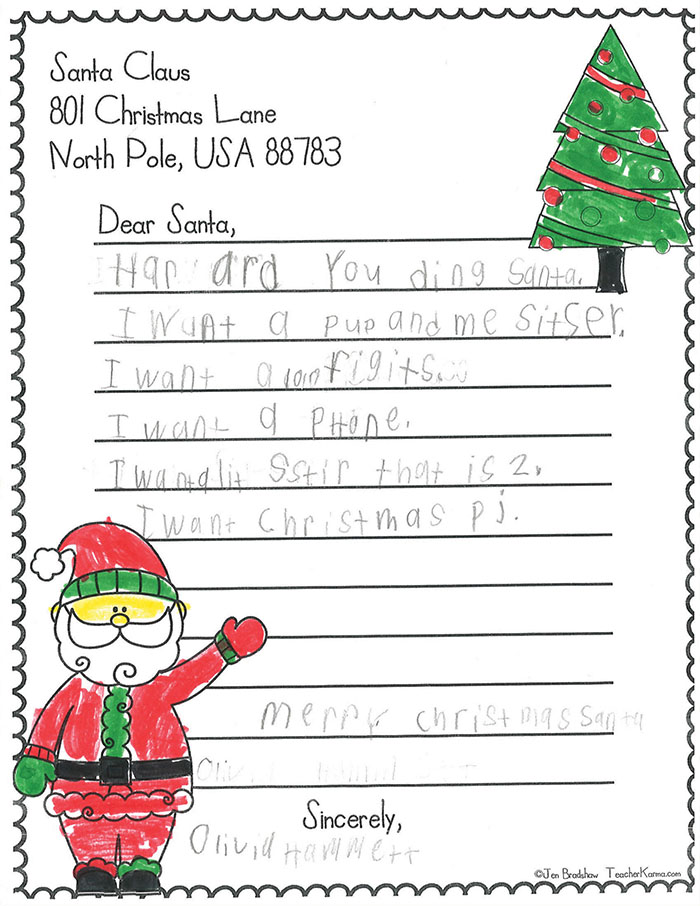 Santa Claus
801 Christmas Lane
North Pole, USA 88783
Dear Santa,
Har ard You ding Santa.
I want a pup and me sitser.
I want a figits.
I want a Phone.
I want a lit sstir that is 2.
I want christmas pj.
merry christmas santa
Sincerely,
Olivia Hammett
©Jen Bradshaw TeacherKarma.com